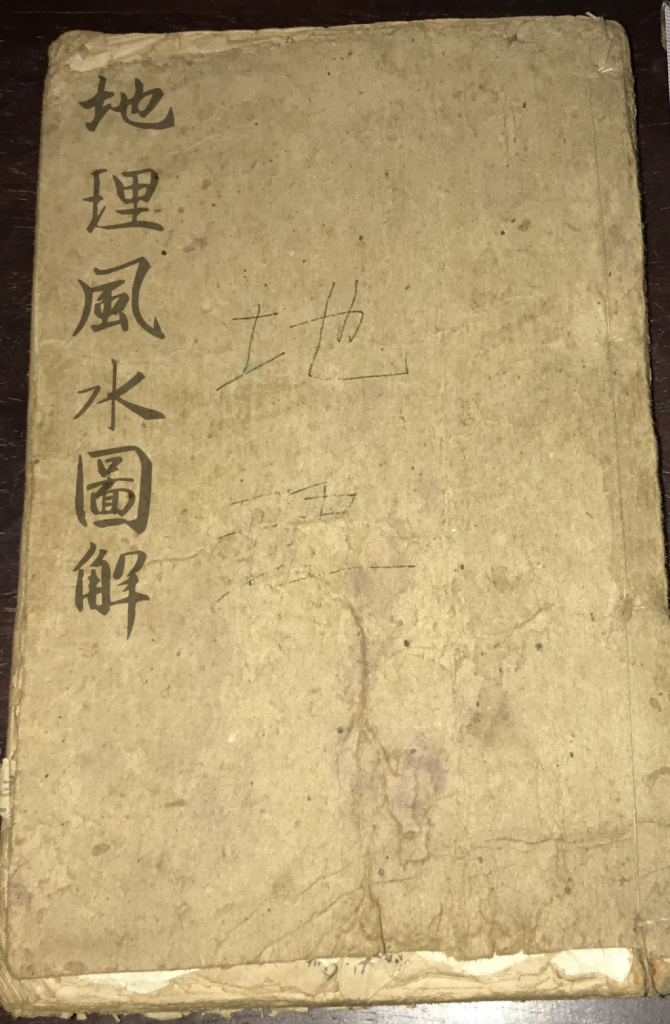 地理風水圖解
地理